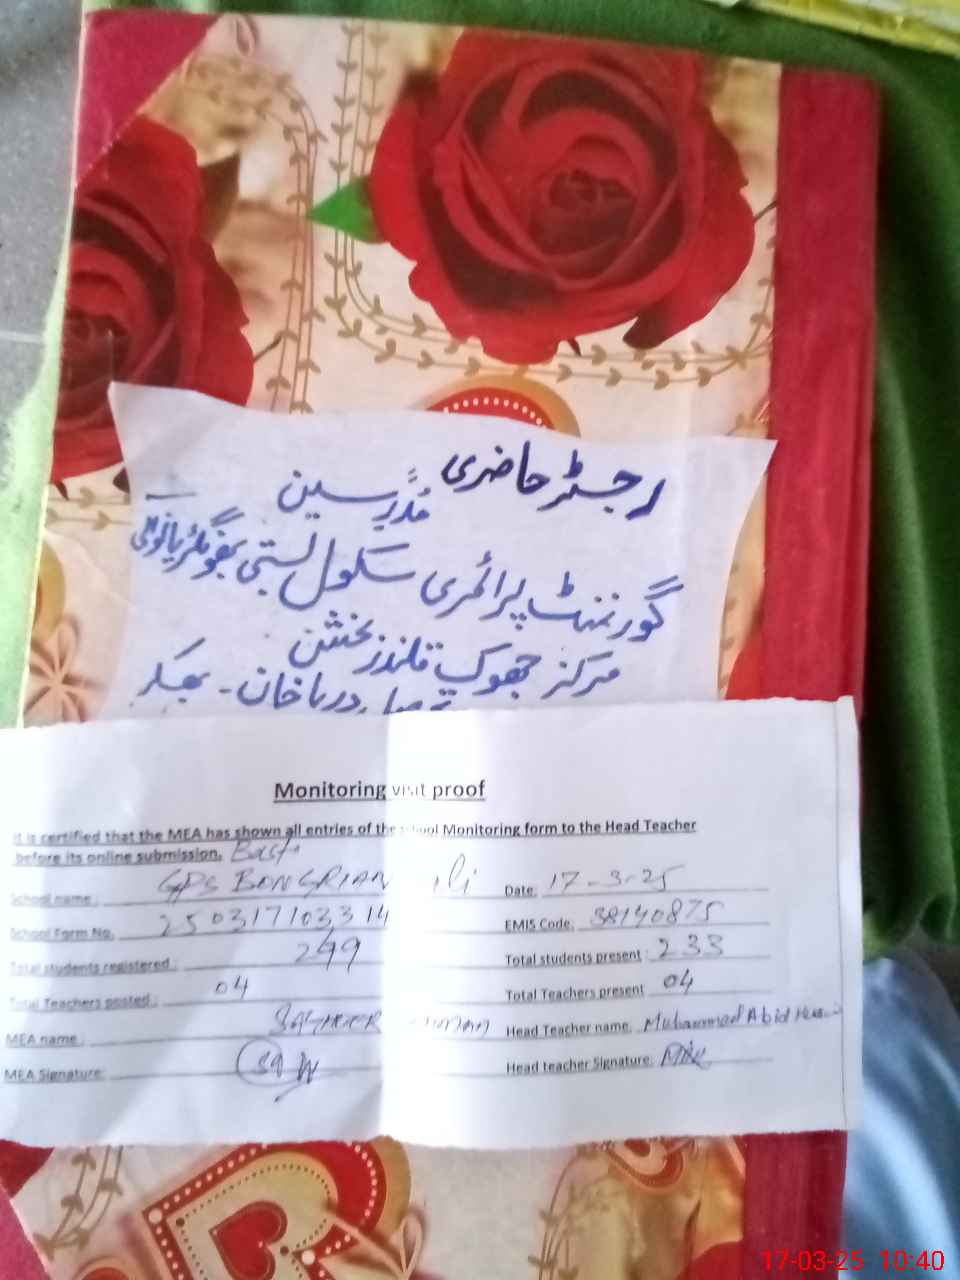 رجسٹر حاضری
مُدرسین
گورنمنٹ پرائمری سکول بستی
مرکز جھوک قلندر بخش
دریاخان - بھکر
Monitoring visit proof
It is certified that the MEA has shown all entries of the school Monitoring form to the Head Teacher
before its online submission. Basti
School name : GPS BONGRIAN
Date: 17-3-25
School Form No. 250317103314
EMIS Code: 38140875
Total students registered : 249
Total students present : 233
Total Teachers posted : 04
Total Teachers present 04
MEA name :
Head Teacher name. Muhammad Abid
MEA Signature:
Head teacher Signature:
17-03-25 10:40